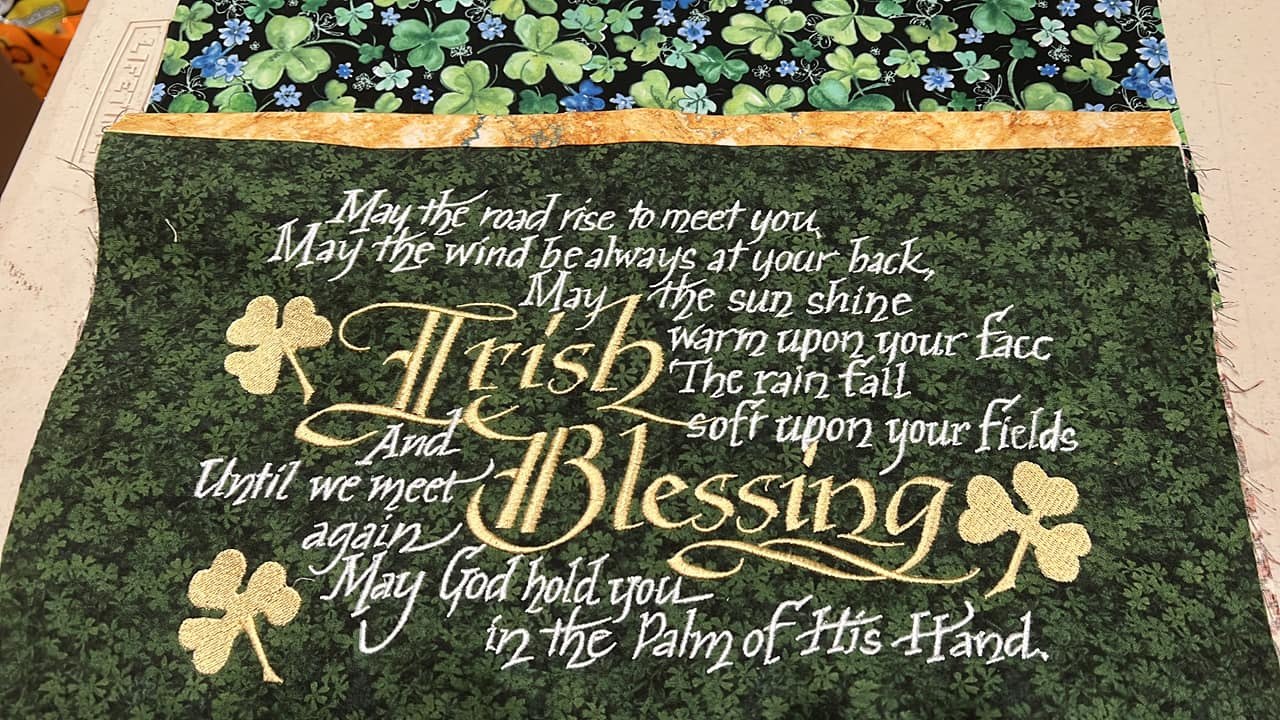 LIFETIME
May the road rise to meet you,
May the wind be always at your back,
May the sun shine
warm upon your face
The rain fall
soft upon your fields
Irish
Blessing
And
Until we meet
again
May God hold you
in the Palm of His Hand.